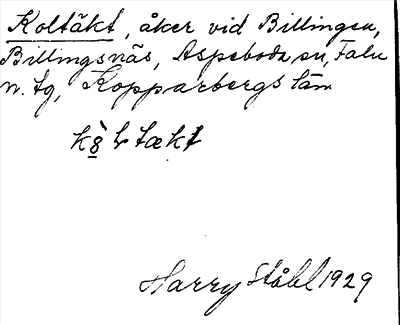 Koltäkt, åker vid Billingen,
Billingsnäs, Aspeboda sn, Falu
n. tg, Kopparbergs län
Harry Ståhl 1929